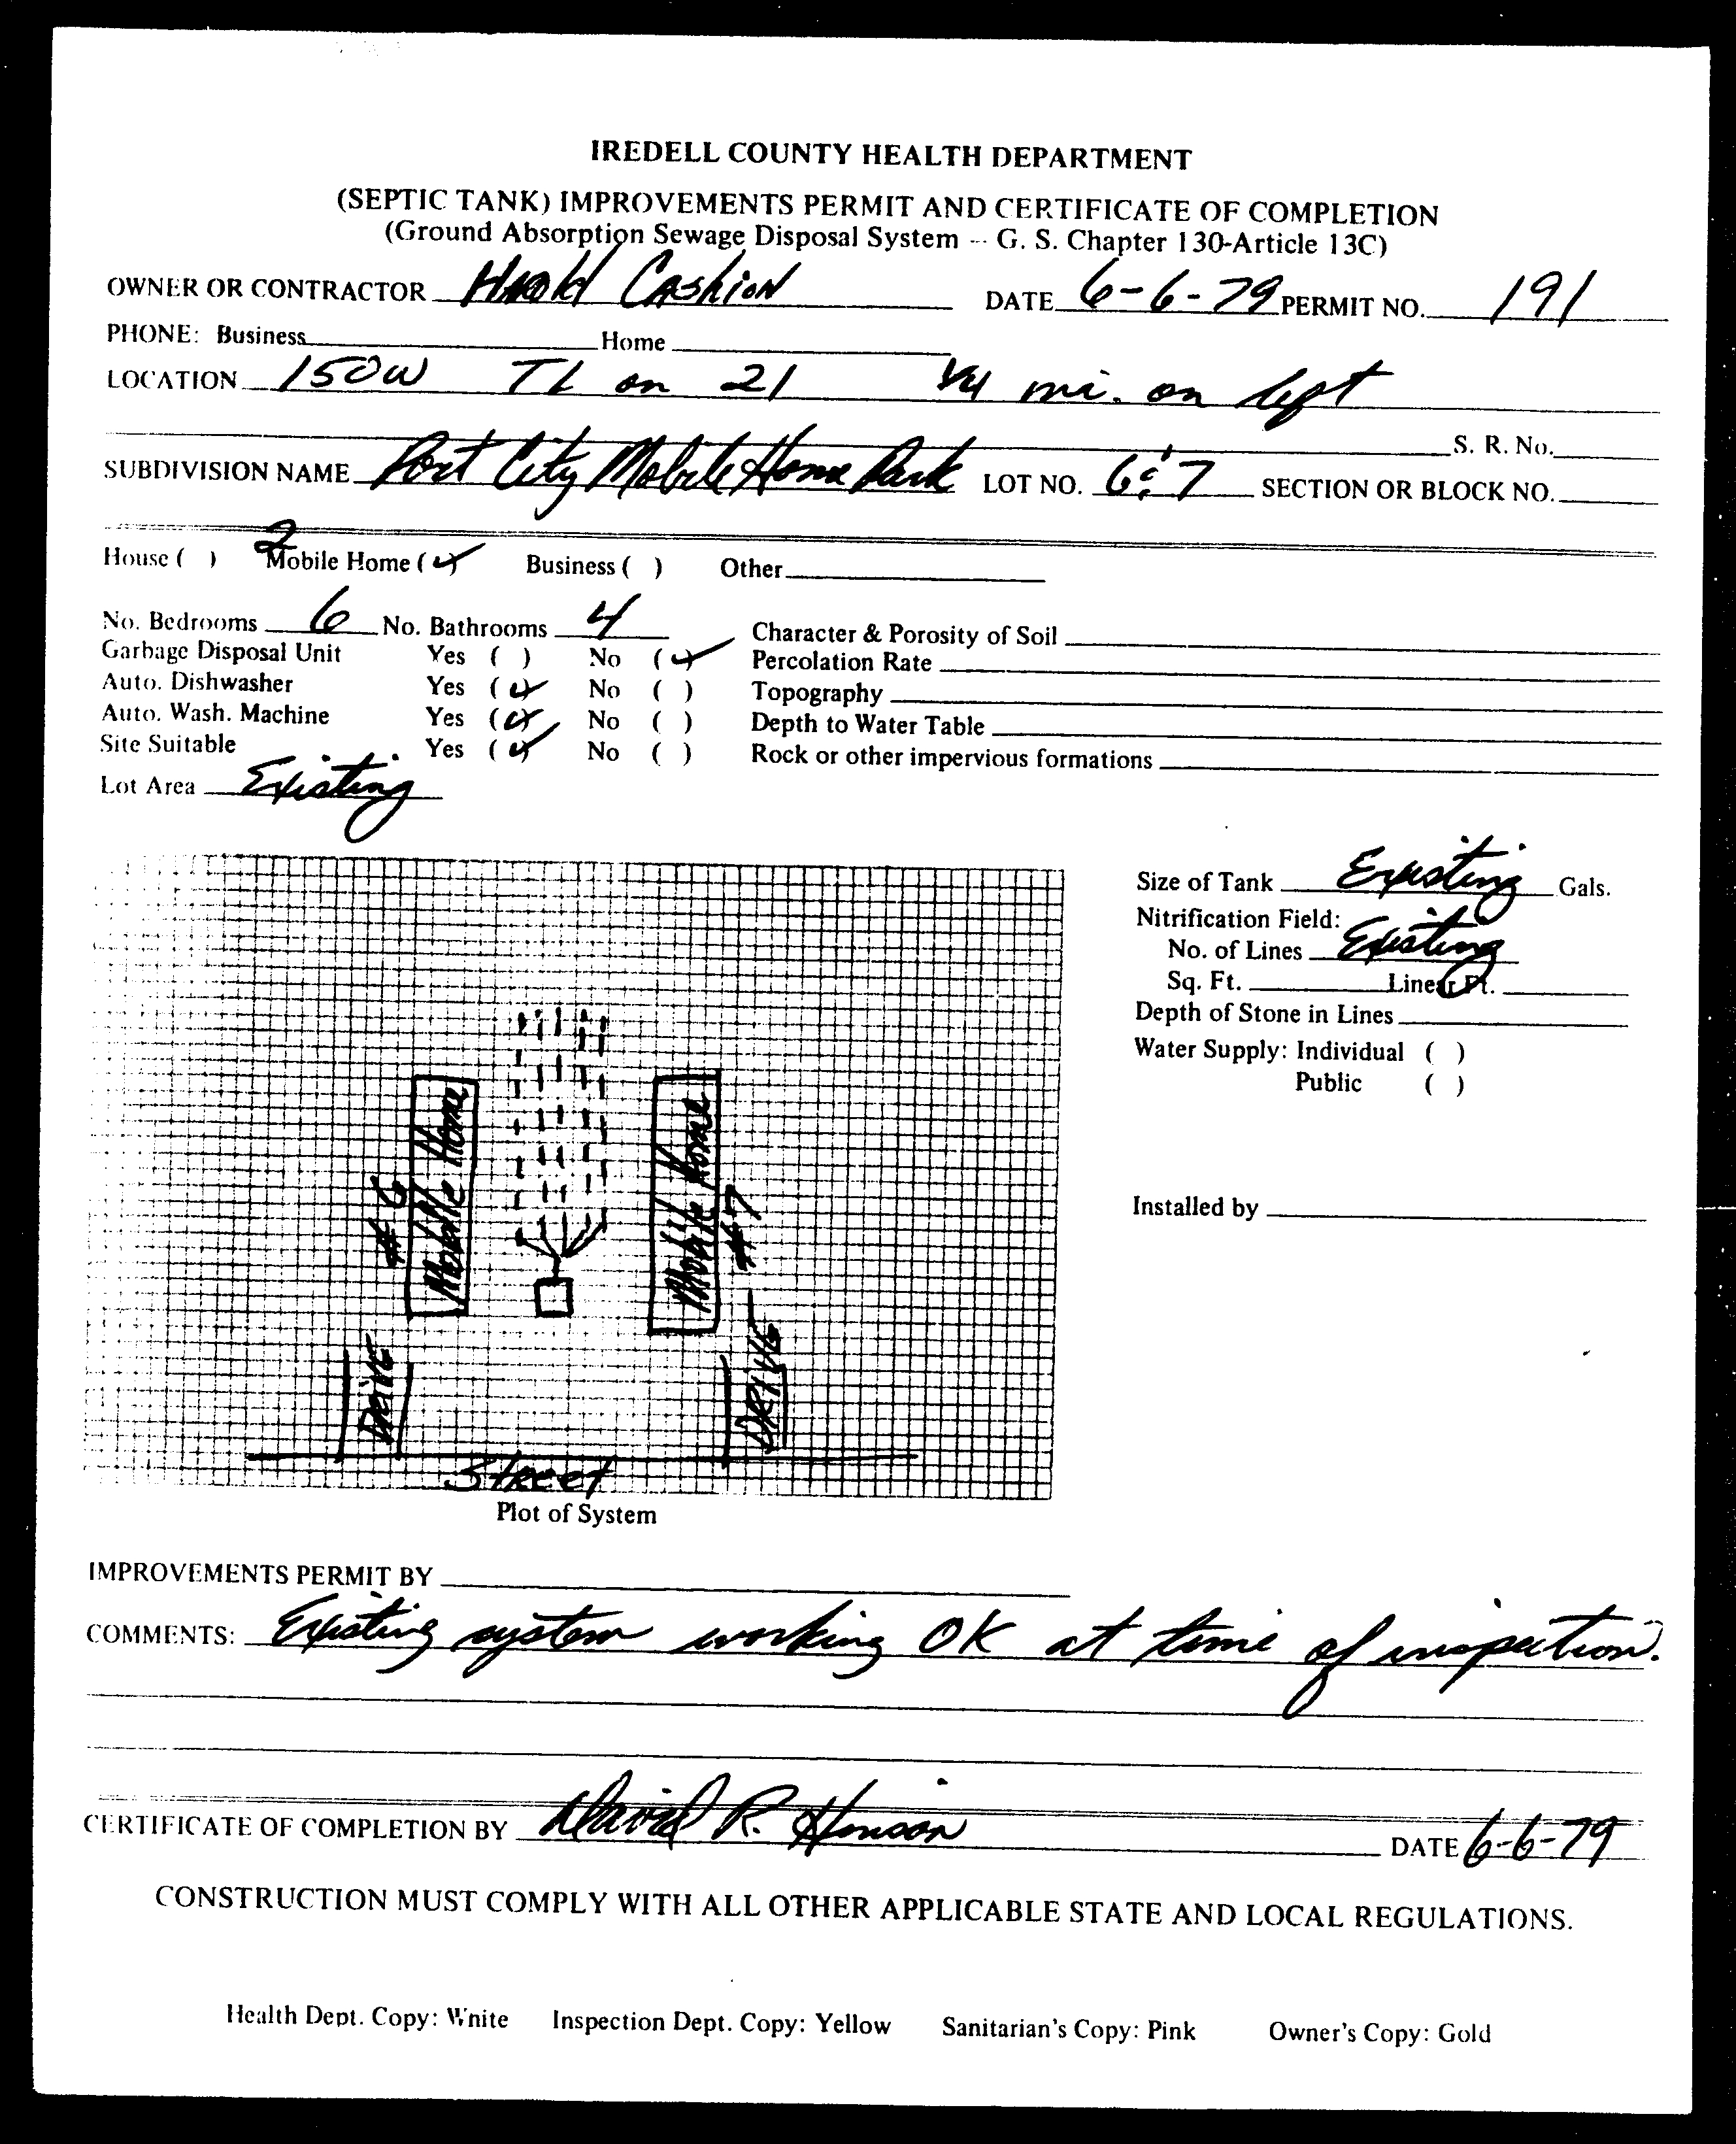 IREDELL COUNTY HEALTH DEPARTMENT
(SEPTIC TANK) IMPROVEMENTS PERMIT AND CERTIFICATE OF COMPLETION
(Ground Absorption Sewage Disposal System -- G. S. Chapter 130-Article 13C)
OWNER OR CONTRACTOR Harold Cashion DATE 6-6-79 PERMIT NO. 191
PHONE: Business Home
LOCATION 150W TL on 21 1/4 mi. on left
S. R. No.
SUBDIVISION NAME Port City Mobile Home Park LOT NO. 6 & 7 SECTION OR BLOCK NO.
House ( ) 2 Mobile Home (✓) Business ( ) Other
No. Bedrooms 6 No. Bathrooms 4 Character & Porosity of Soil
Garbage Disposal Unit Yes ( ) No (✓) Percolation Rate
Auto. Dishwasher Yes (✓) No ( ) Topography
Auto. Wash. Machine Yes (✓) No ( ) Depth to Water Table
Site Suitable Yes (✓) No ( ) Rock or other impervious formations
Lot Area Existing
Size of Tank Existing Gals.
Nitrification Field:
No. of Lines Existing
Sq. Ft. Linear Ft.
Depth of Stone in Lines
Water Supply: Individual ( )
Public ( )
Installed by
# 6
Mobile Home
Mobile Home
# 7
DRIVE
DRIVE
Street
Plot of System
IMPROVEMENTS PERMIT BY
COMMENTS: Existing system working OK at time of inspection.
CERTIFICATE OF COMPLETION BY David R. Henson DATE 6-6-79
CONSTRUCTION MUST COMPLY WITH ALL OTHER APPLICABLE STATE AND LOCAL REGULATIONS.
Health Dept. Copy: White Inspection Dept. Copy: Yellow Sanitarian's Copy: Pink Owner's Copy: Gold